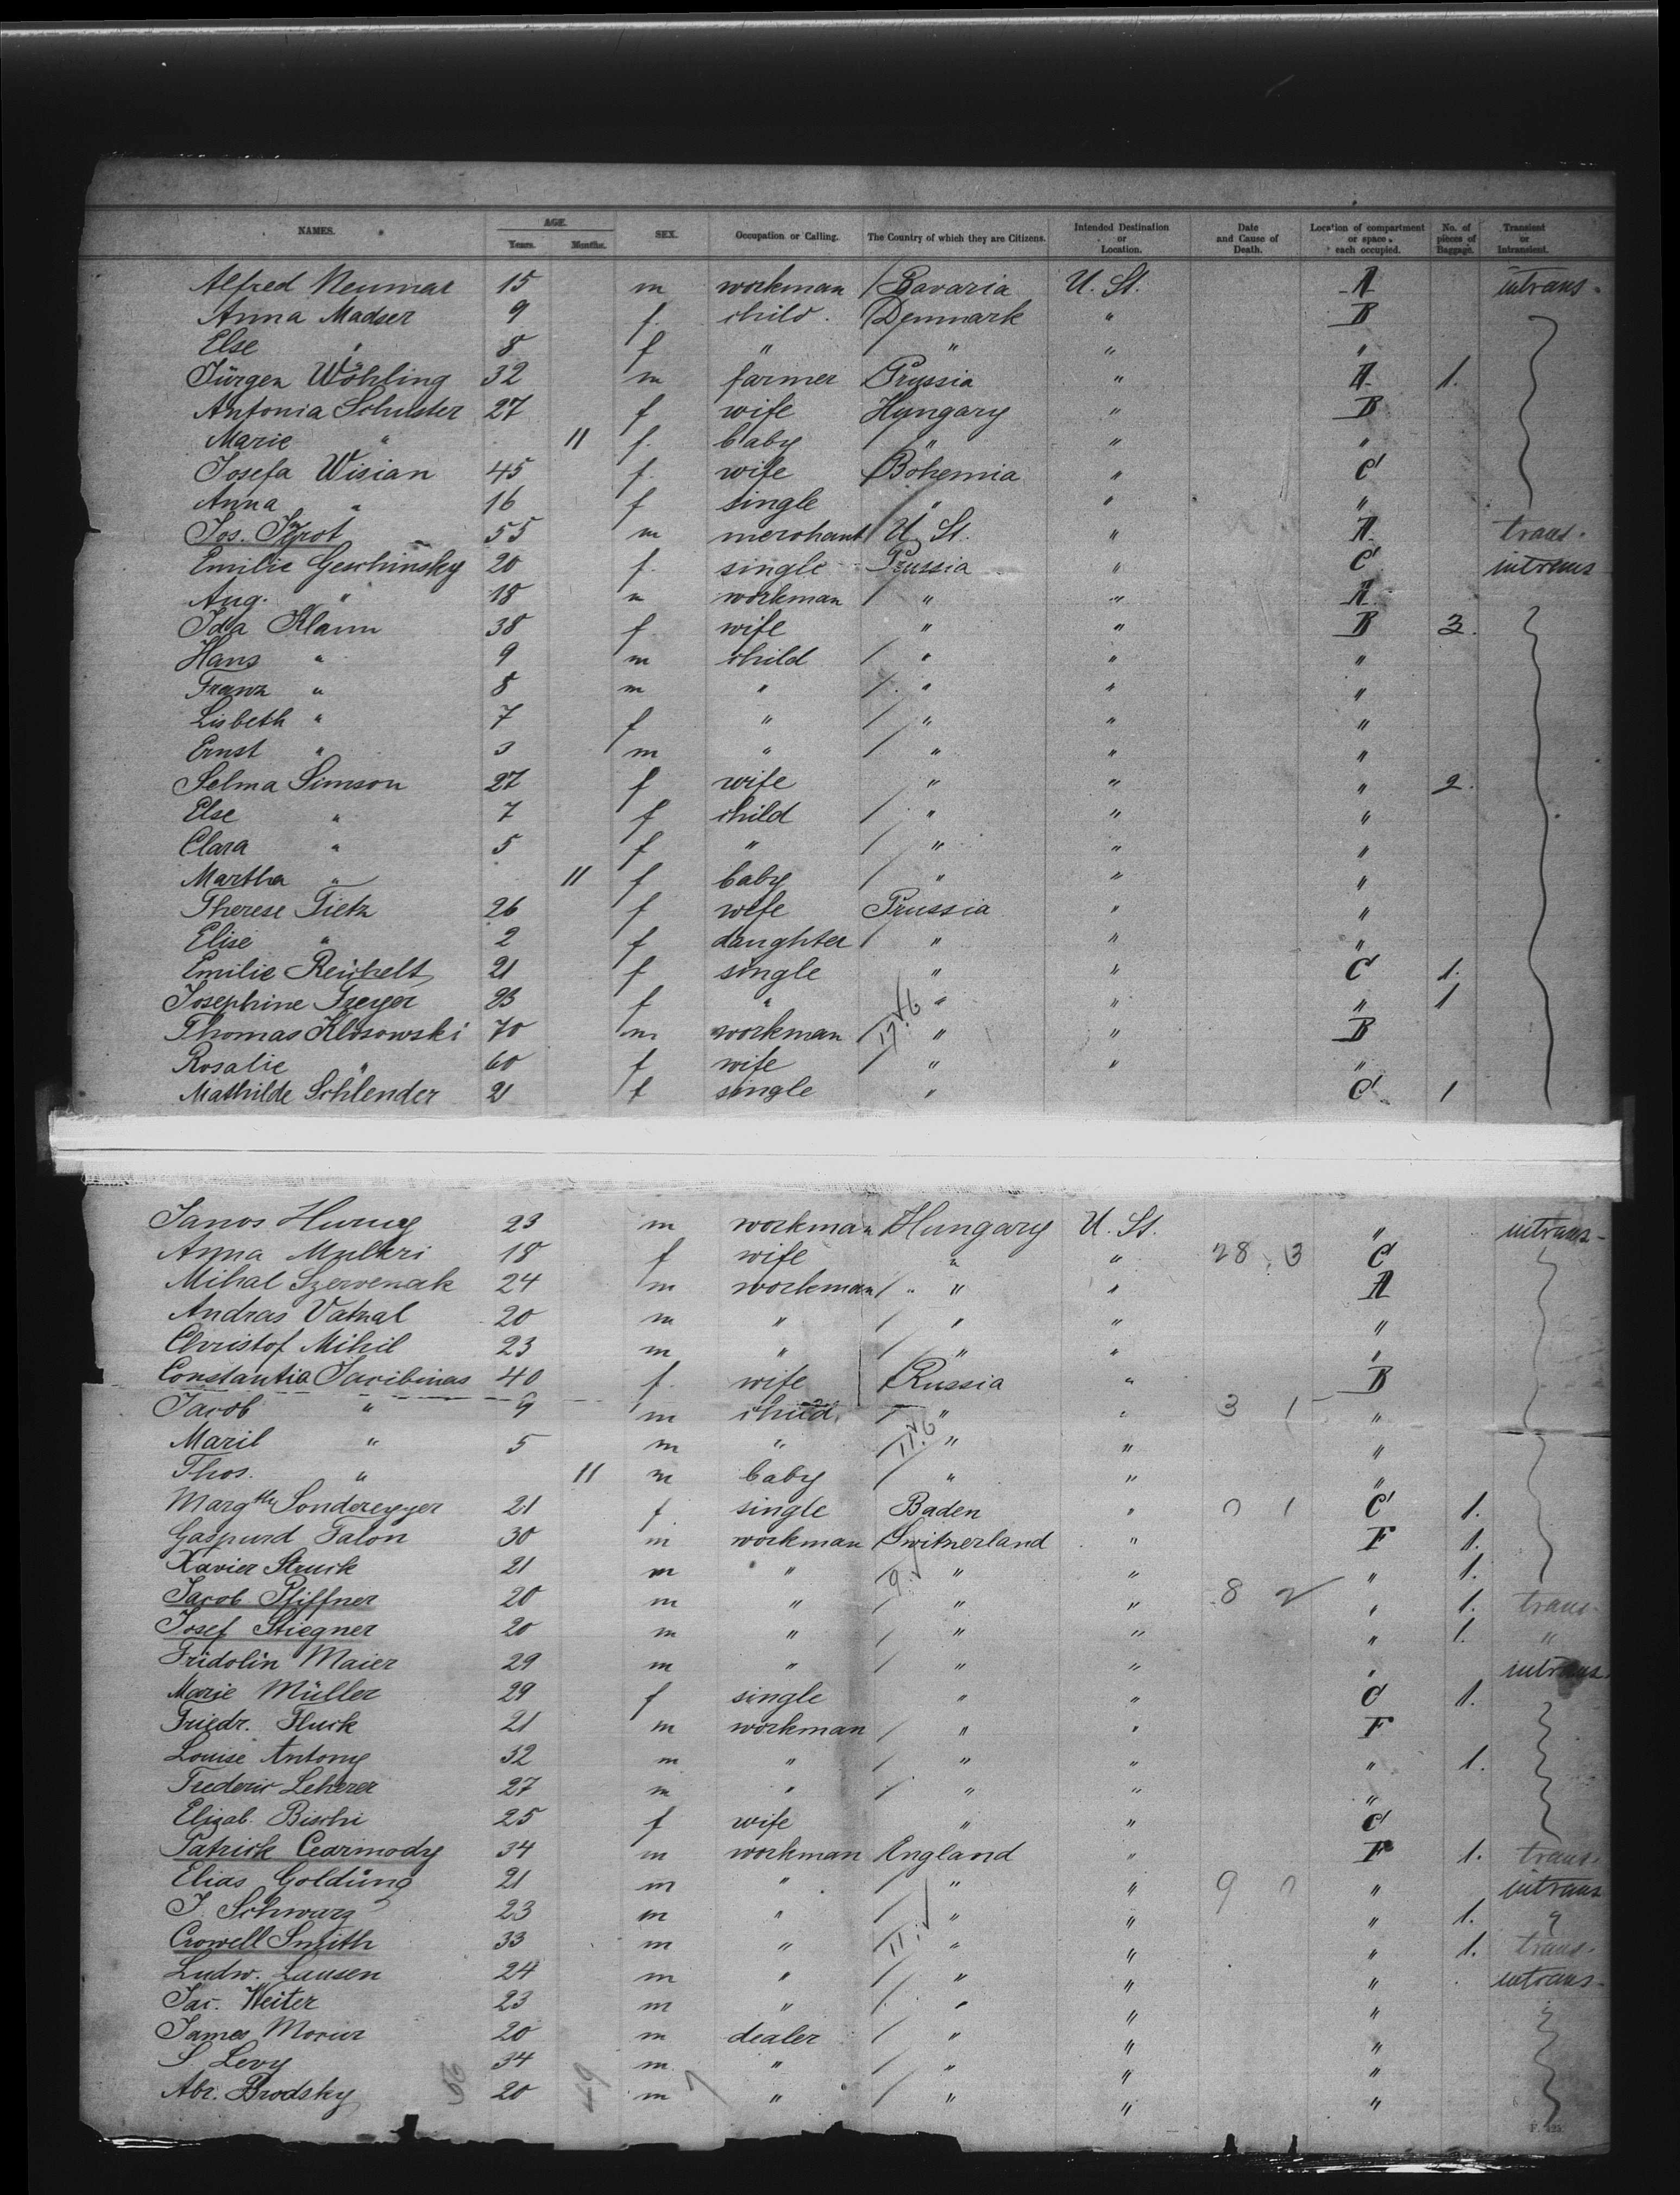 NAMES. AGE. Years. Months. SEX. Occupation or Calling. The Country of which they are Citizens. Intended Destination or Location. Date and Cause of Death. Location of compartment or space each occupied. No. of pieces of Baggage. Transient or Intransient.
Alfred Neumar 15 m workman Bavaria U. St. A intrans.
Anna Madser 9 f. child. Denmark " B
Else " 8 f " " " "
Jürgen Wöhling 32 m farmer Prussia " A. 1.
Antonia Schuster 27 f wife Hungary " B
Marie " 11 f. baby " " "
Josefa Wisian 45 f. wife Bohemia " C
Anna " 16 f single " " "
Jos. 55 m merchant U. St. " A. trans.
Emilie Geschinsky 20 f. single Prussia " C intrans
Aug. " 18 m workman " " A.
Ida Klann 38 f wife " " B 3.
Hans " 9 m child " " "
Franz " 8 m " " " "
Lisbeth " 7 f " " " "
Ernst " 3 m " " " "
Selma Simson 27 f wife " " " 2.
Else " 7 f child " " "
Clara " 5 f " " " "
Martha " 11 f baby " " "
Therese Tietz 26 f wife Prussia " "
Elise " 2 f daughter " " "
Emilie Reichelt 21 f single " " C 1.
Josephine Freyer 23 f " " " " 1
Thomas Klosowski 70 m workman " " B
Rosalie " 60 f wife " " "
Mathilde Schlender 21 f single " C 1
Janos 23 m workman Hungary U. St. " intrans-
Anna Mulkri 18 f wife " " 28 3 C
Mihal Szervenak 24 m workman " " A
Andras Vatnal 20 m " " " "
Christof Mihil 23 m " " " "
Constantia 40 f. wife Russia " B
Jacob " 9 m child " " 3 1 "
Maril " 5 m " " " "
Thos. " 11 m baby " " "
Margthe Sonderegger 21 f. single Baden " 1 C 1.
Gaspurd Talon 30 m workman Switzerland " F 1.
Xavier Struck 21 m " " " " 1.
Jacob Pfiffner 20 m " " " 8 2 " 1. trans.
Josef Stiegner 20 m " " " " 1. "
Fridolin Maier 29 m " " " " intrans.
Marie Müller 29 f single " " C 1.
Friedr. Fluck 21 m workman " " F
Louise Antony 32 m " " " " 1.
Frederic Leherer 27 m " " " "
Elizab. Bischi 25 f wife " " C
Patrick Cearmody 34 m workman England " F 1. trans.
Elias Golding 21 m " " " 9 " intrans
J. Schwarz 23 m " " " " 1. "
Crowell Smith 33 m " " " " 1. trans.
Ludw. Lausen 24 m " " " " intrans-
Jac. Weiter 23 m " " " "
James 20 m dealer " " "
S. Levy 34 m " " " "
Abr. Brodsky 20 m " " " "